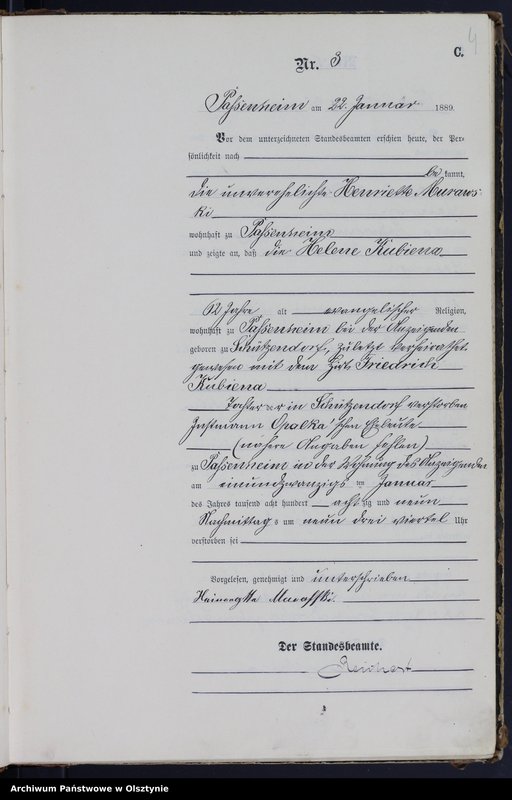 4
C.
Nr. 3
Passenheim am 22. Januar 1889.
Vor dem unterzeichneten Standesbeamten erschien heute, der Per=
sönlichkeit nach
be kannt,
die unverehelichte Henriette Muraws-
ki
wohnhaft zu Passenheim
und zeigte an, daß die Helene Kubiena
62 Jahre alt evangelischer Religion,
wohnhaft zu Passenheim bei der Anzeigenden
geboren zu Schützendorf, zuletzt verheirathet
gewesen mit dem Wirt Friedrich
Kubiena
Tochter der in Schützendorf verstorben
Instmann Opalka'schen Eheleute
(nähere Angaben fehlen)
zu Passenheim in der Wohnung des Anzeigenden
am einundzwanzigs ten Januar
des Jahres tausend acht hundert acht zig und neun
Nachmittag s um neun drei viertel Uhr
verstorben sei
Vorgelesen, genehmigt und unterschrieben
Murafski.
Der Standesbeamte.
Reichert
Archiwum Państwowe w Olsztynie